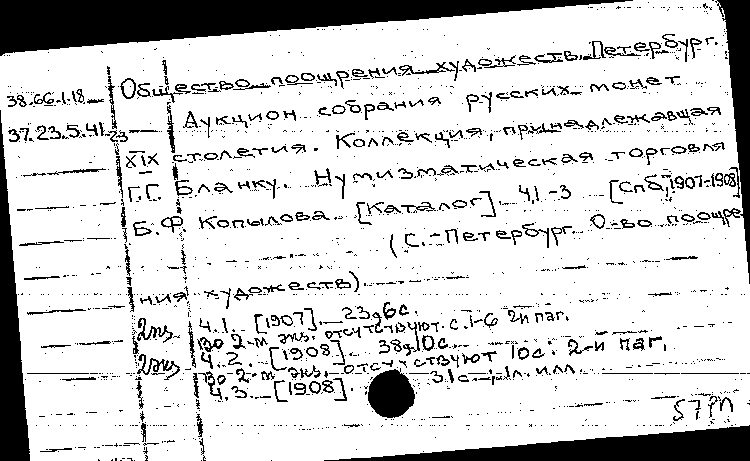 Общество поощрения художеств, Петербург.
38.66.1.18 Аукцион собрания русских монет
37.23.5.41-23
XIX столетия. Коллекция, принадлежавшая
Г.С. Бланку. Нумизматическая торговля
Б.Ф. Копылова. [Каталог]. Ч.1-3 [Спб, 1907-1908]
(С.-Петербург. О-во поощре
ния художеств).
2экз Ч.1. [1907]. 23, 96с.
Во 2-м экз. отсутствуют с. 1-6 2й паг.
2экз Ч.2. [1908]. 38, 10с.
Во 2-м экз. отсутствуют 10с. 2-й паг.
Ч.3. [1908]. 31с., 1л. илл.